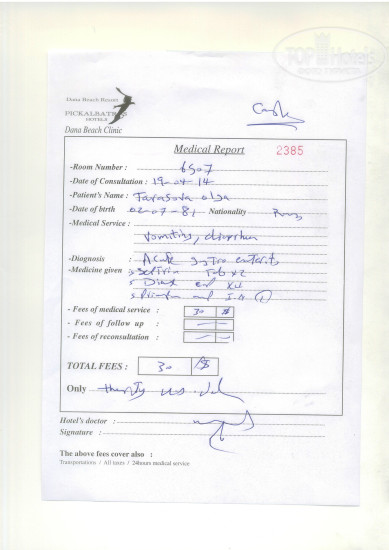 TOP Hotels
Dana Beach Resort
PICKALBATROS
HOTELS
Dana Beach Clinic
Cash
Medical Report 2385
-Room Number : 6507
-Date of Consultation : 19-04-14
-Patient's Name : Tarasova olga
-Date of birth 02-07-81 Nationality
-Medical Service :
vomiting, diarrhea
-Diagnosis : Acute gastro enteritis
-Medicine given
- Fees of medical service : 30 $
- Fees of follow up :
- Fees of reconsultation :
TOTAL FEES : 30 $
Only thirty us.
Hotel's doctor :
Signature :
The above fees cover also :
Transportations / All taxes / 24hours medical service